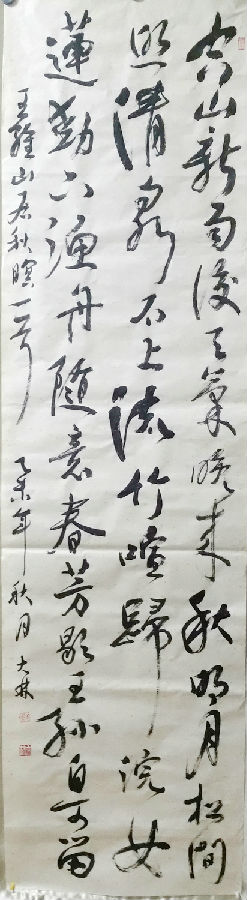 空山新雨後天氣晚來秋明月松間
照清泉石上流竹喧歸浣女
蓮動下漁舟隨意春芳歇王孫自可留
王維山居秋暝一首 乙未年秋月 大林